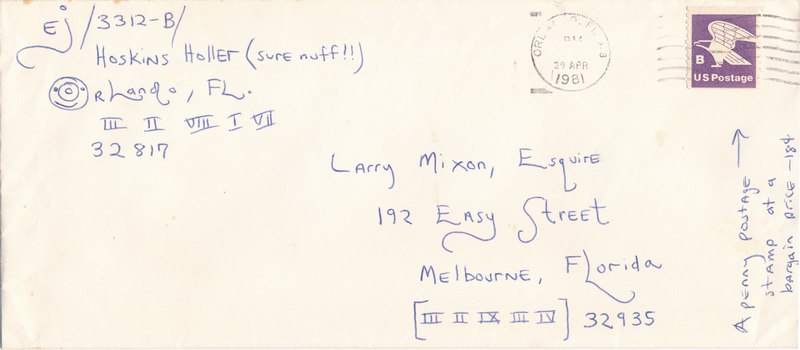 Ej/3312-B/
Hoskins Holler (sure nuff!!)
Orlando, FL.
III II VIII I VII
32817
PM
29 APR
1981
B
US Postage
Larry Mixon, Esquire
192 Easy Street
Melbourne, Florida
[III II IX III IV] 32935
A penny postage →
stamp at a
bargain price - 18¢